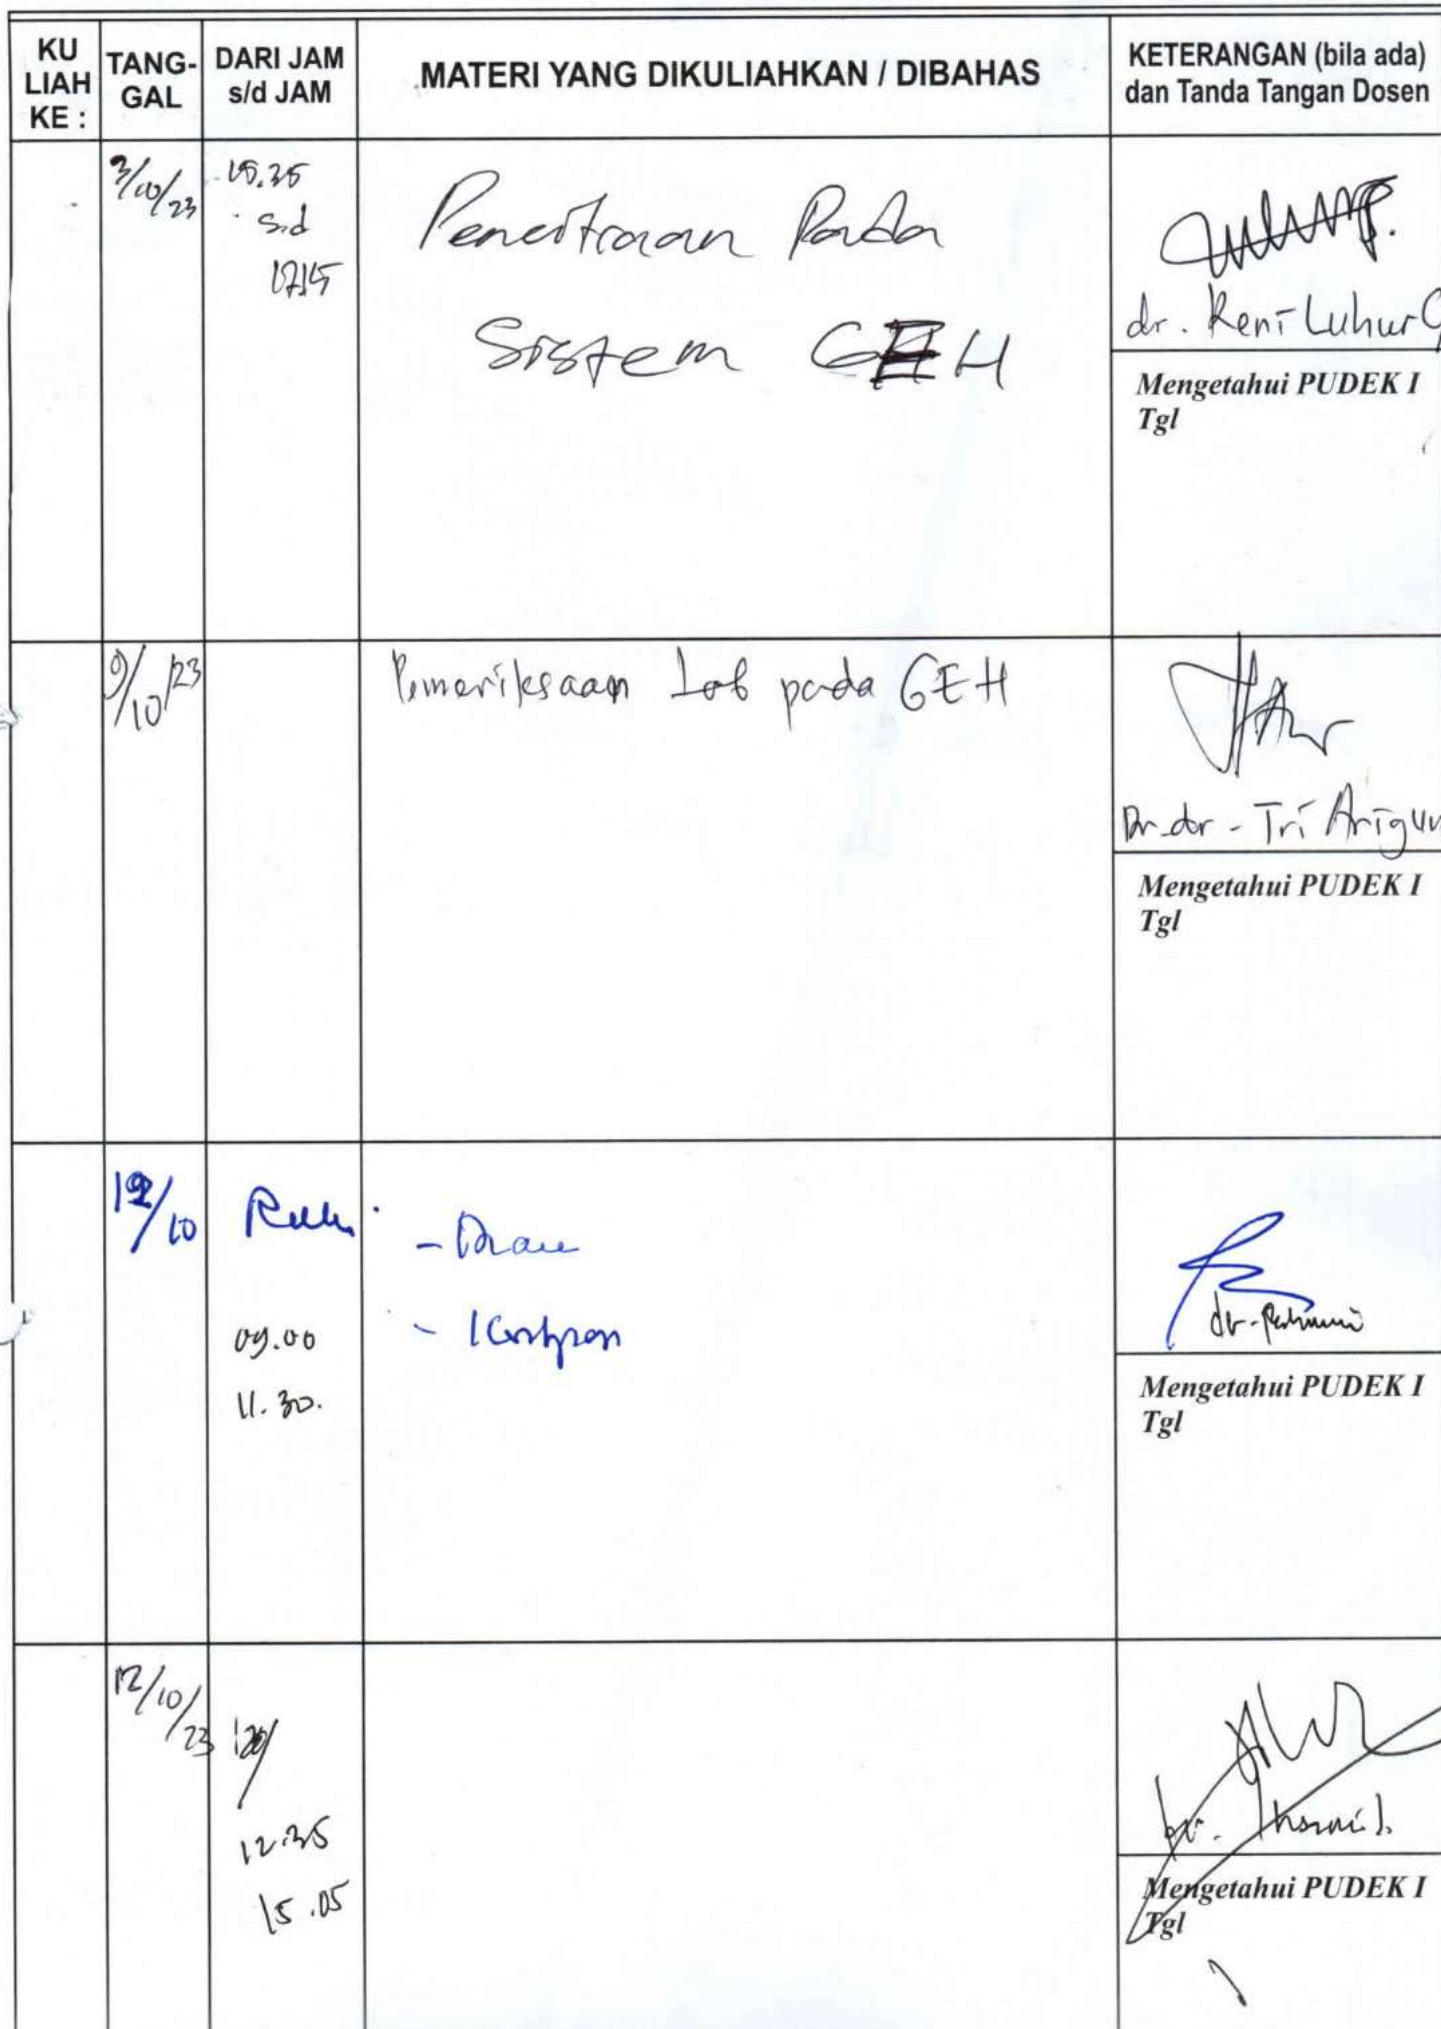 KU
LIAH
KE :
TANG-
GAL
DARI JAM
s/d JAM
MATERI YANG DIKULIAHKAN / DIBAHAS
KETERANGAN (bila ada)
dan Tanda Tangan Dosen
3/10/23
15.35
s.d
17.15
Pencitraan Pada
Sistem GEH
dr. Reni Luhur
Mengetahui PUDEK I
Tgl
9/10/23
Pemeriksaan Lab pada GEH
Dr. dr - Tri Arigun
Mengetahui PUDEK I
Tgl
12/10
- Diare
09.00
11.30.
dr.
Mengetahui PUDEK I
Tgl
12/10/23
12.35
15.05
Mengetahui PUDEK I
Tgl